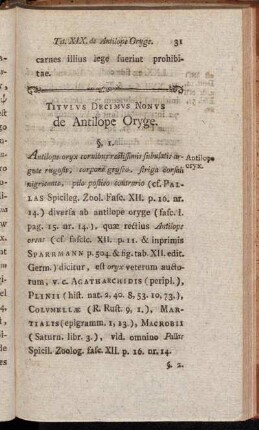 Tit. XIX. de Antilope Oryge. 31
carnes illius lege fuerint prohibi-
tae.
TITVLVS DECIMVS NONVS
de Antilope Oryge.
§. 1.
Antilope oryx cornibus rectissimis subulatis ar-
gute rugosis, corpore gryseo, striga dorsali
nigricante, pilo postico contrario (cf. PAL-
LAS Spicileg. Zool. Fasc. XII. p. 16. nr.
14.) diversa ab antilope oryge (fasc. I.
pag. 15. nr. 14.), quae rectius Antilope
oreas (cf. fascic. XII. p. 11. & inprimis
SPARRMANN p. 504. & fig. tab. XII. edit.
Germ.) dicitur, est oryx veterum aucto-
rum, v. c. AGATHARCHIDIS (peripl.),
PLINII (hist. nat. 2, 40. 8, 53. 10, 73.),
COLVMELLÆ (R. Rust. 9, 1.), MAR-
TIALIS (epigramm. 1, 13.), MACROBII
(Saturn. libr. 3.), vid. omnino Pallas
Spicil. Zoolog. fasc. XII. p. 16. nr. 14.
Antilope
oryx.
§. 2.